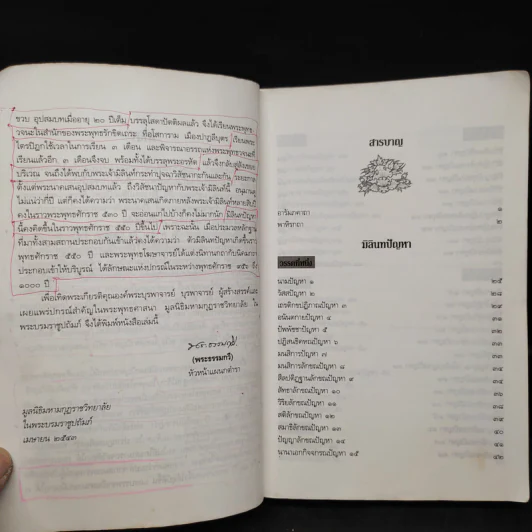 ขวบ อุปสมบทเมื่ออายุ ๒๐ ปีเต็ม บรรลุโสดาปัตติผลแล้ว จึงได้เรียนพระพุทธ
วจนะในสำนักของพระพุทธรักขิตเถระ ที่อโสการาม เมืองปาฏลีบุตร เรียนพระ
ไตรปิฎกใช้เวลาในการเรียน ๓ เดือน และพิจารณาอรรถแห่งพระพุทธวจนะที่
เรียนแล้วอีก ๓ เดือนจึงจบ พร้อมทั้งได้บรรลุพระอรหัต แล้วจึงกลับสู่
บริเวณ จนได้พบกับพระเจ้ามิลินท์กระทำปุจฉาวิสัชนากะกันและกัน
ตั้งแต่พระนาคเสนอุปสมบทแล้ว ถึงวิสัชนาปัญหากับพระเจ้ามิลินท์นี้
ไม่แน่ว่ากี่ปี แต่ก็คงได้ความว่า พระนาคเสนเกิดภายหลังพระเจ้ามิลินท์หลายสิบปี
คงในราวพระพุทธศักราช ๕๓๐ ปี จะอ่อนแก่ไปบ้างก็คงไม่มากนัก มิลินปัญหา
นี้คงคิดขึ้นในราวพระพุทธศักราช ๕๕๐ ปีขึ้นไป เพราะฉะนั้น เมื่อประมวลหลักฐาน
ที่มาทั้งสามสถานประกอบกันเข้าแล้วคงได้ความว่า ตัวมิลินทปัญหาเกิดขึ้น
พุทธศักราช ๕๕๐ ปี และพระพุทธโฆษาจารย์ได้แต่งนิทานกถากับนิคมกถา
ประกอบเข้าให้บริบูรณ์ ได้ลักษณะแห่งปกรณ์ในระหว่างพุทธศักราช ๙๕๖ ถึง
๑๐๐๐ ปี
เพื่อเทิดพระเกียรติคุณองค์พระบุรพาจารย์ บุรพาจารย์ ผู้สร้างสรรค์และ
เผยแพร่ปกรณ์สำคัญในพระพุทธศาสนา มูลนิธิมหามกุฏราชวิทยาลัย ใน
พระบรมราชูปถัมภ์ จึงได้พิมพ์หนังสือเล่มนี้
(พระธรรมกวี)
หัวหน้าแผนกตำรา
มูลนิธิมหามกุฏราชวิทยาลัย
ในพระบรมราชูปถัมภ์
เมษายน ๒๕๔๓
สารบาญ
อารัมภกาถา ๑
พาหิรกถา ๒
มิลินทปัญหา
วรรคที่หนึ่ง
นามปัญหา ๑ ๒๕
วัสสปัญหา ๒ ๒๘
เถรติกขปฏิภาณปัญหา ๓ ๒๙
อนันตกายปัญหา ๔ ๓๑
ปัพพัชชาปัญหา ๕ ๓๓
ปฏิสนธิคหณปัญหา ๖ ๓๓
มนสิการปัญหา ๗ ๓๓
มนสิการลักขณปัญหา ๘ ๓๔
สีลปติฏฐานลักขณปัญหา ๙ ๓๔
สัทธาลักขณปัญหา ๑๐ ๓๖
วิริยลักขณปัญหา ๑๑ ๓๘
สติลักขณปัญหา ๑๒ ๓๙
สมาธิลักขณปัญหา ๑๓ ๔๐
ปัญญาลักขณปัญหา ๑๔ ๔๑
นานาเอกกิจจกรณปัญหา ๑๕ ๔๒